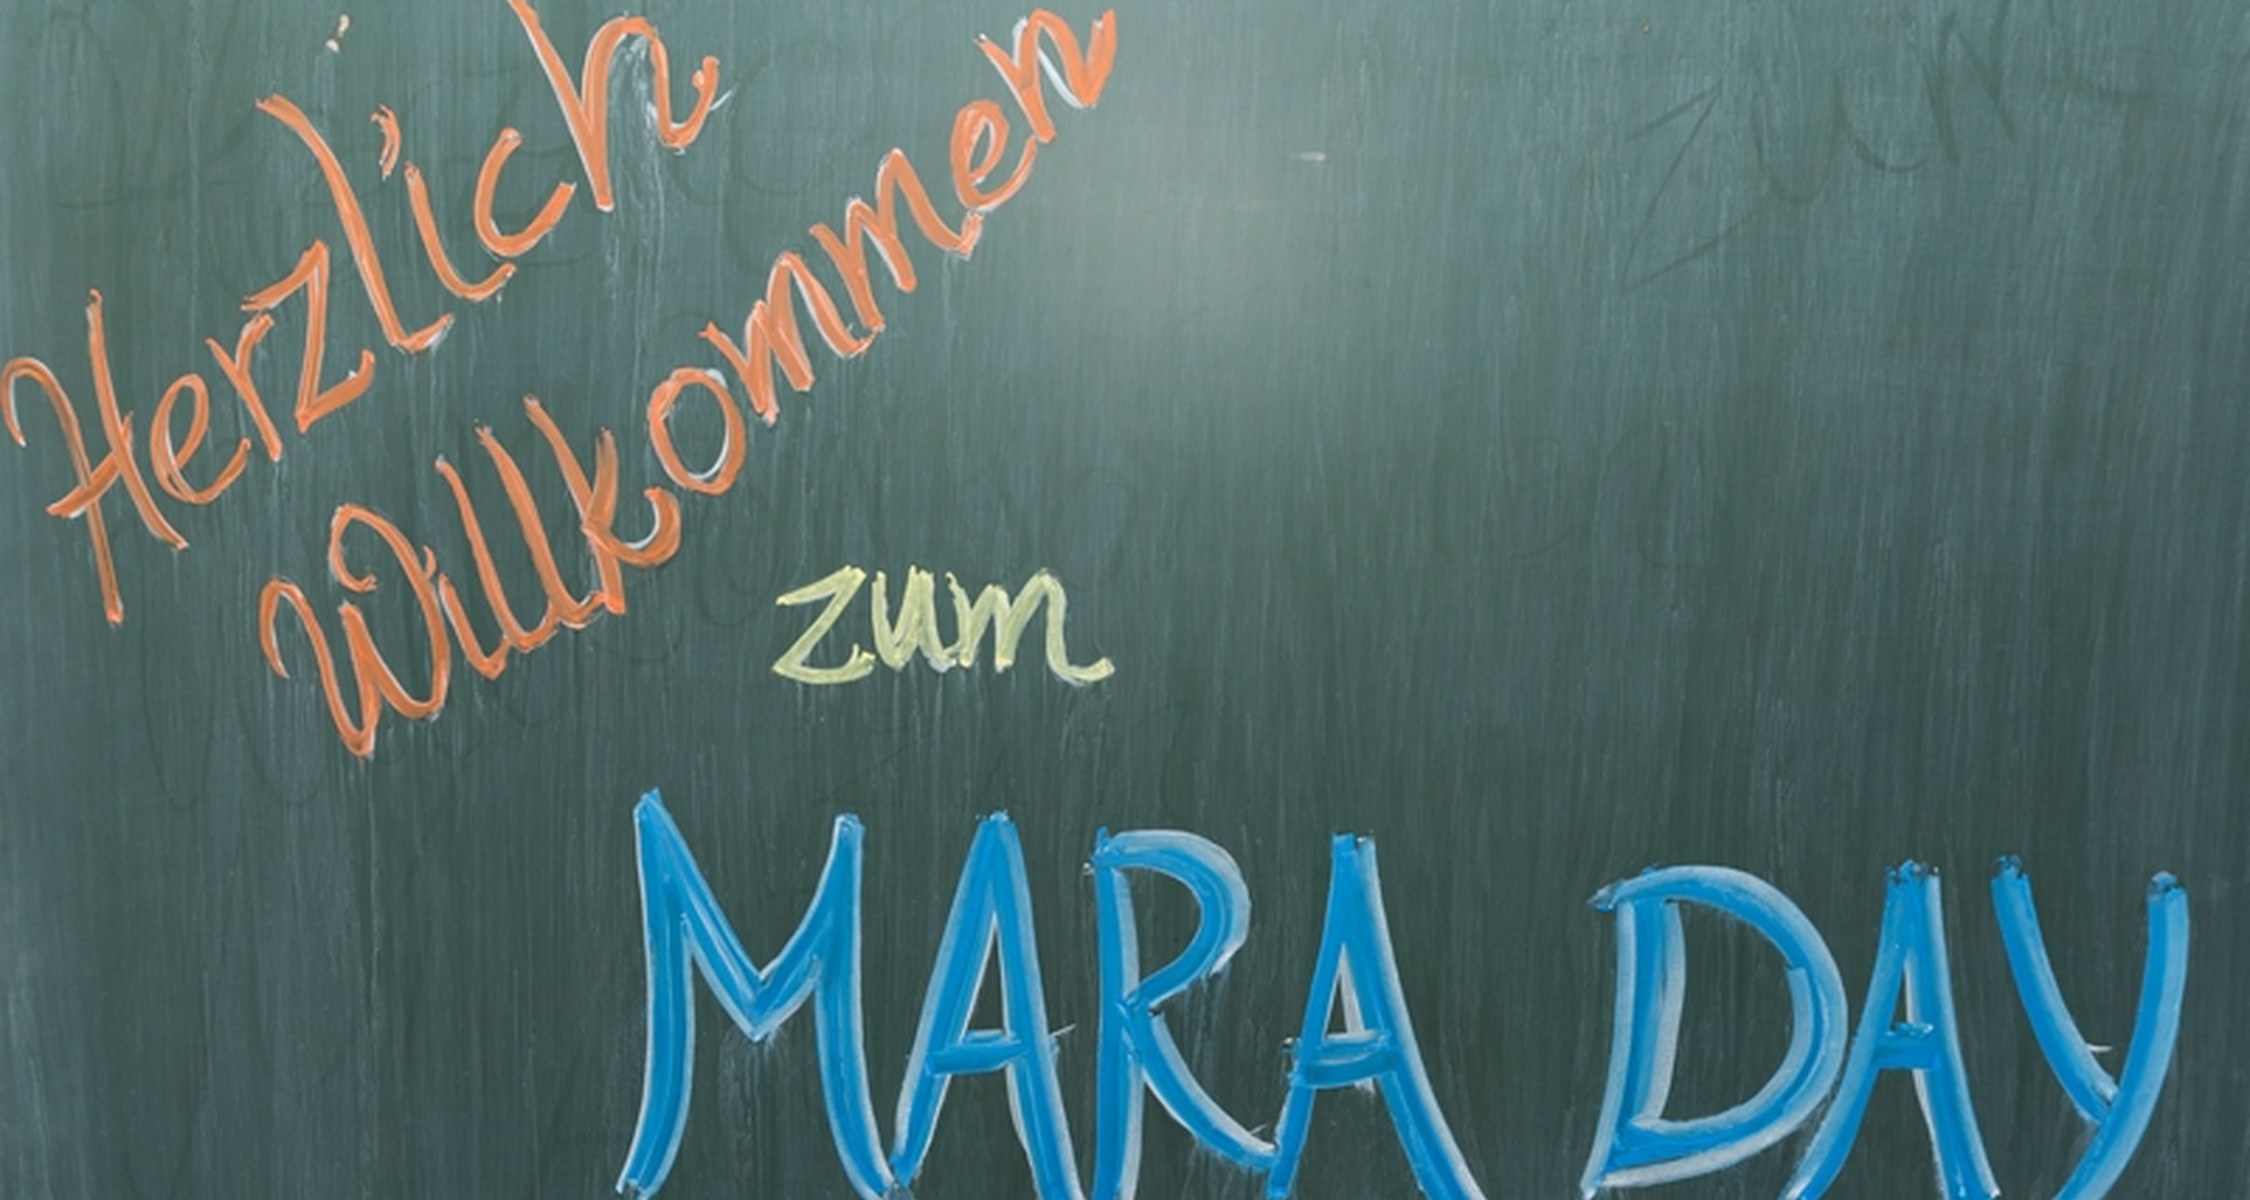 Herzlich
Willkommen
zum
MARA DAY